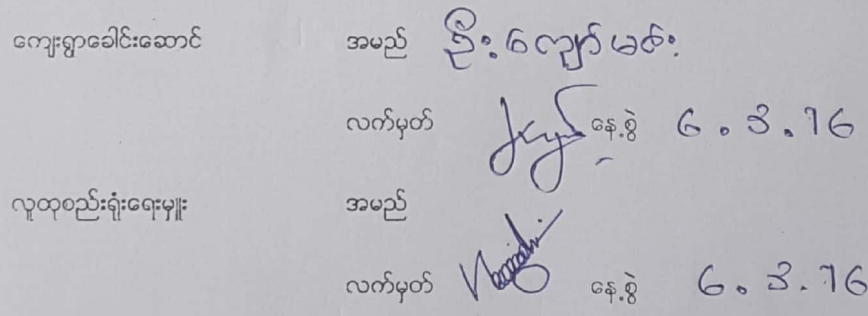 ကျေးရွာခေါင်းဆောင် အမည် ဦးကျော်မင်း
လက်မှတ် နေ့စွဲ 6.3.16
လူထုစည်းရုံးရေးမှူး အမည်
လက်မှတ် နေ့စွဲ 6.3.16